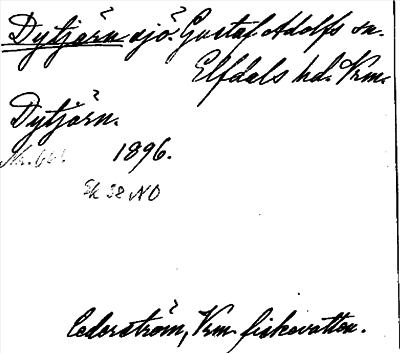 Dytjärn sjö. Gustaf Adolfs sn.
Elfdals hd. Vrm.
Dytjärn.
1896.
Ek 38 NO
Cederström, Vrm. fiskevatten.